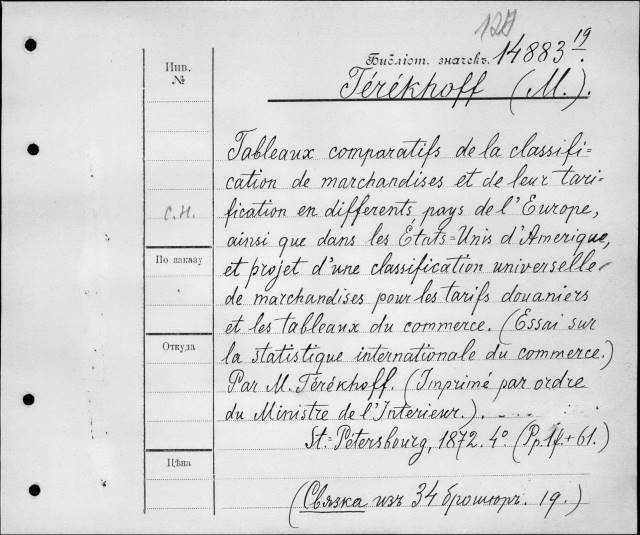 127
Библіот. значекъ. 14883 19.
Térékhoff (M.).
Инв.
№
Tableaux comparatifs de la classifi=
cation de marchandises et de leur tari=
fication en differents pays de l'Europe,
с.н.
ainsi que dans les États=Unis d'Amerique,
По заказу
et projet d'une classification universelle
de marchandises pour les tarifs douaniers
et les tableaux du commerce. (Essai sur
Откуда
la statistique internationale du commerce.)
Par M. Térékhoff. (Imprimé par ordre
du Ministre de l'Interieur.).
St=Pétersbourg, 1872. 4º. (Pp. 1f.+61.)
Цѣна
(Связка изъ 34 брошюръ. 19.)